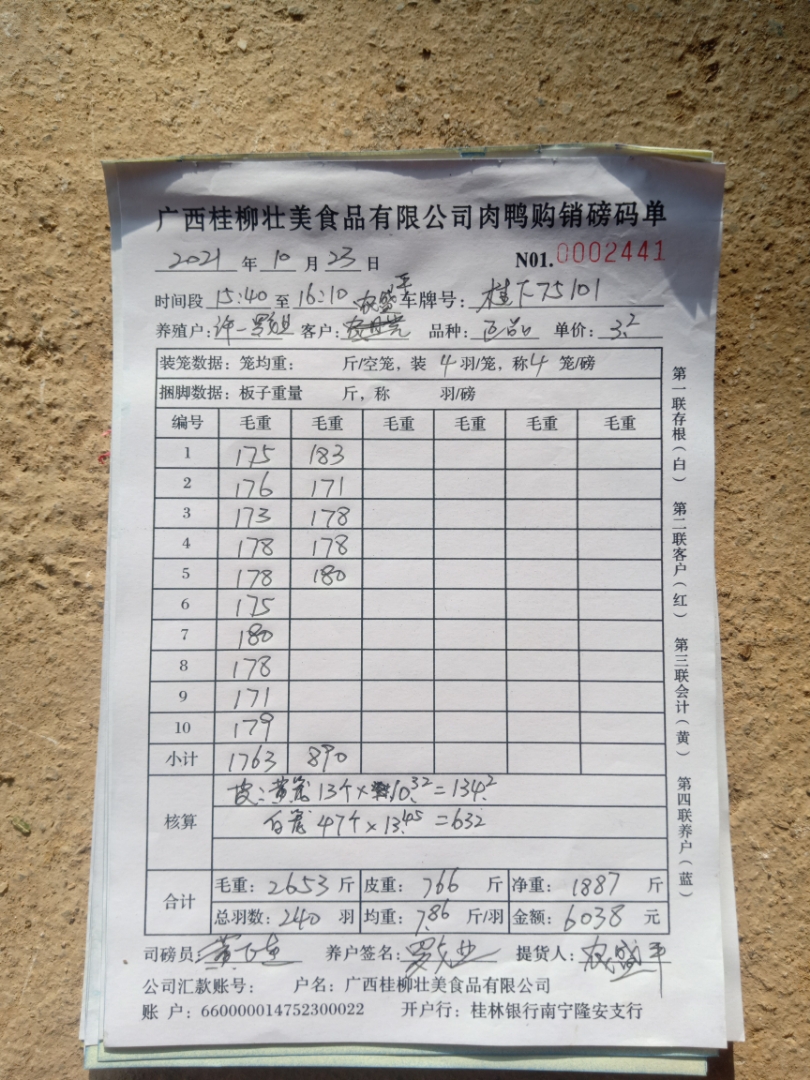 广西桂柳壮美食品有限公司肉鸭购销磅码单
2021 年 10 月 23 日 N01.0002441
时间段 15:40 至 16:10 农盛平 车牌号: 桂F75101
养殖户: 许一 客户: 品种: 正品 单价: 3.2
装笼数据: 笼均重: 斤/空笼, 装 4 羽/笼, 称 4 笼/磅
捆脚数据: 板子重量 斤, 称 羽/磅
编号 毛重 毛重 毛重 毛重 毛重 毛重
1 175 183
2 176 171
3 173 178
4 178 178
5 178 180
6 175
7 180
8 178
9 171
10 179
小计 1763 890
核算 皮: 黄笼 13个×10.32=134.2
白笼 47个×13.45=632
合计 毛重: 2653 斤 皮重: 766 斤 净重: 1887 斤
总羽数: 240 羽 均重: 7.86 斤/羽 金额: 6038 元
司磅员: 养户签名: 提货人: 农盛平
公司汇款账号: 户名: 广西桂柳壮美食品有限公司
账 户: 660000014752300022 开户行: 桂林银行南宁隆安支行
第一联存根(白) 第二联客户(红) 第三联会计(黄) 第四联养户(蓝)